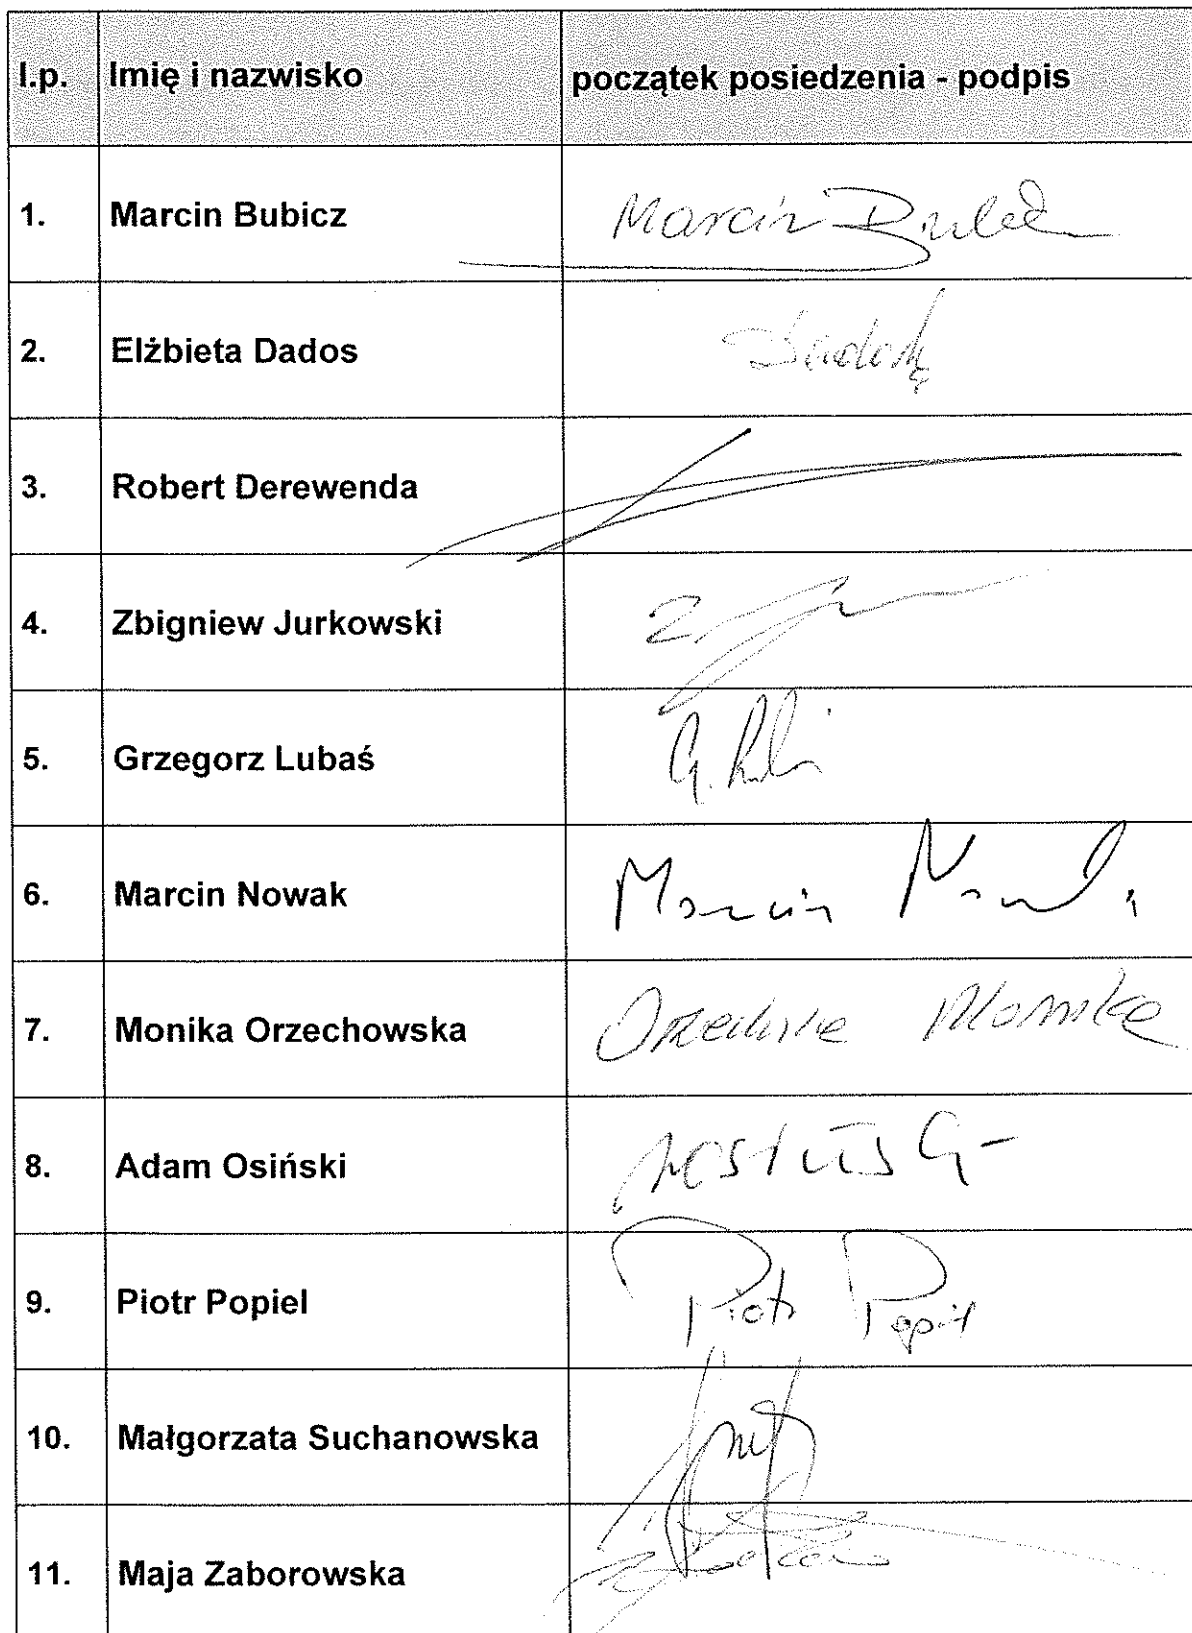 l.p. Imię i nazwisko początek posiedzenia - podpis
1. Marcin Bubicz Marcin
2. Elżbieta Dados
3. Robert Derewenda
4. Zbigniew Jurkowski
5. Grzegorz Lubaś
6. Marcin Nowak Marcin
7. Monika Orzechowska
8. Adam Osiński
9. Piotr Popiel Piotr Popiel
10. Małgorzata Suchanowska
11. Maja Zaborowska